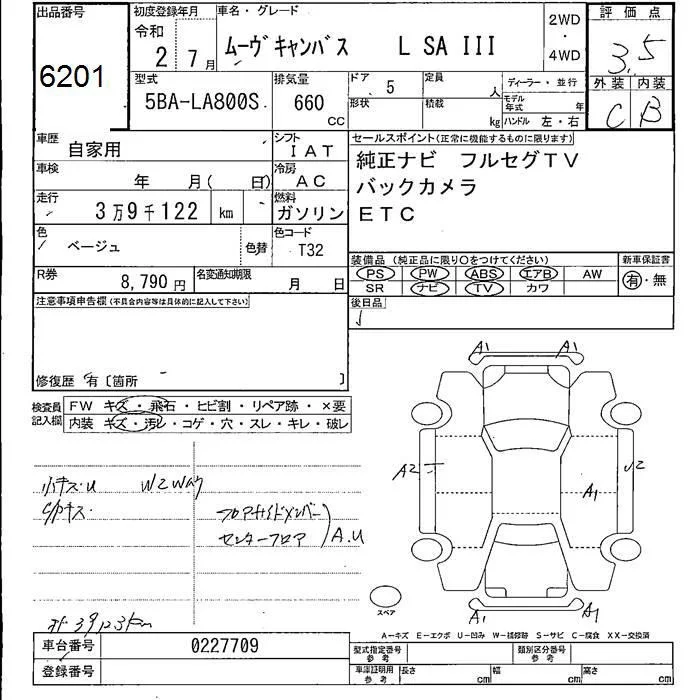 出品番号
6201
初度登録年月
令和
2 7月
車名・グレード
ムーヴキャンバス L SA III
2WD
・
4WD
評価点
3.5
外装 内装
C B
型式
5BA-LA800S
排気量
660
CC
ドア 5
形状
定員 人
積載 kg
ディーラー・並行
モデル年式 年
ハンドル 左・右
車歴 自家用
シフト IAT
車検 年 月( 日)
冷房 AC
走行 3万9千122 km
燃料 ガソリン
色 ベージュ
色替
色コード T32
R券 8,790円
名変通知期限 月 日
セールスポイント(正常に機能するものに限ります)
純正ナビ フルセグTV
バックカメラ
ETC
装備品(純正品に限り○をつけてください)
PS PW ABS エアB AW
SR ナビ TV カワ
新車保証書
有・無
後日品
注意事項申告欄(不具合内容等は具体的に記入して下さい)
修復歴 有〔箇所 〕
検査員記入欄
FW キズ・飛石・ヒビ割・リペア跡・×要
内装 キズ・汚レ・コゲ・穴・スレ・キレ・破レ
小キズ.U
フロアサイドメンバー
センターフロア
A.U
A1 A1
A2
A1
A1 A1
スペア
A－キズ E－エクボ U－凹み W－補修跡 S－サビ C－腐食 XX－交換済
車台番号 0227709
登録番号
型式指定番号 参考
類別区分番号 参考
車庫証明用 参考
長さ cm
幅 cm
高さ cm